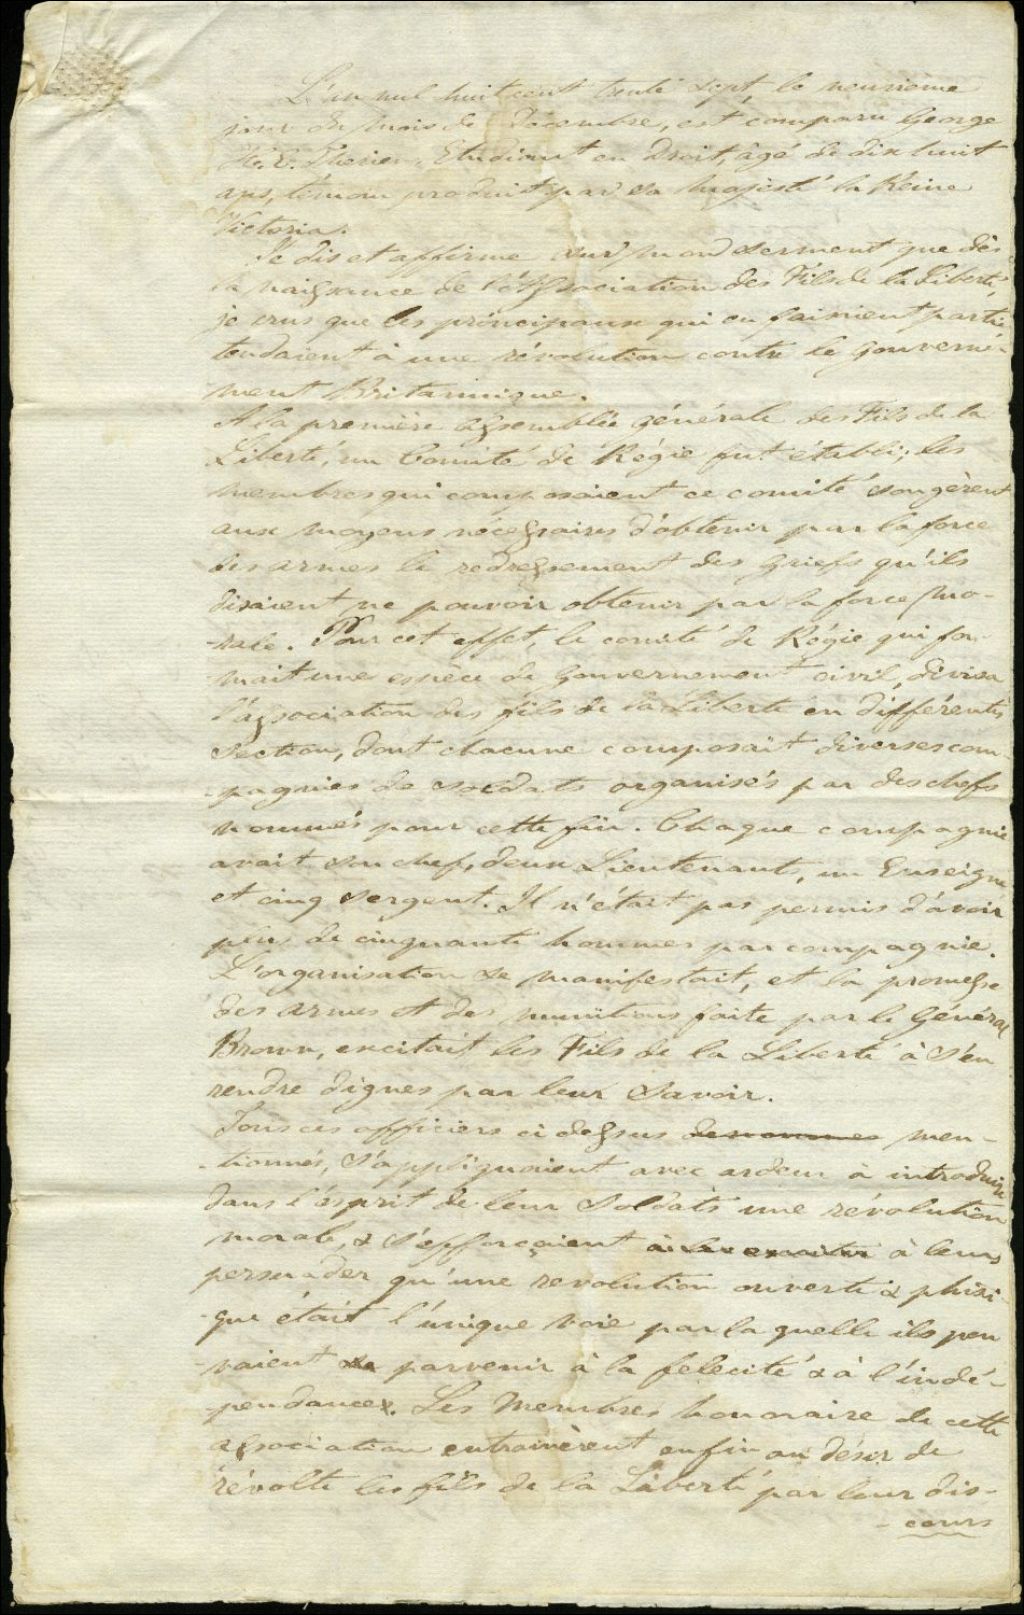 L'an mil huit cent trente sept, le neuvième
jour du mois de Décembre, est comparu George
H. E. Therien, Etudiant en Droit, âgé de dix huit
ans, témoin produit par Sa Majesté la Reine
Victoria.
Je dis et affirme sur mon serment que dès
la naissance de l'Association des Fils de la Liberté,
je crus que les principaux qui en faisaient partie
tendaient à une révolution contre le gouverne-
ment Britannique.
A la première assemblée générale des Fils de la
Liberté, un Comité de Régie fut établi; les
membres qui composaient ce comité songèrent
aux moyens nécessaires d'obtenir par la force
des armes le redressement des griefs qu'ils
disaient ne pouvoir obtenir par la force mo-
-rale. Pour cet effet, le comité de Régie qui for-
-mait une espèce de gouvernement civil, divisa
l'association des fils de la Liberté en différentes
section, dont chacune composait diverses com-
-pagnies de soldats organisés par des chefs
nommés pour cette fin. Chaque compagnie
avait son chef, deux Lieutenants, un Enseigne
et cinq sergent. Il n'était pas permis d'avoir
plus de cinquante hommes par compagnie.
L'organisation se manifestait, et la promesse
des armes et des munitions faite par le Général
Brown, excitait les Fils de la Liberté à s'en
rendre dignes par leur savoir.
Tous ces officiers ci dessus denommés men-
-tionnés, s'appliquaient avec ardeur à introduire
dans l'ésprit de leur soldats une révolution
morale, & s'éfforçaient à les exciter à leurs
persuader qu'une revolution ouverte & phisi-
-que était l'únique voie par la quelle ils pou
-vaient de parvenir à la felecité & à l'indé-
-pendance. Les Membres honoraire de cette
association entrainèrent enfin au désir de
révolte les fils de la Liberté par leur dis-
-cours